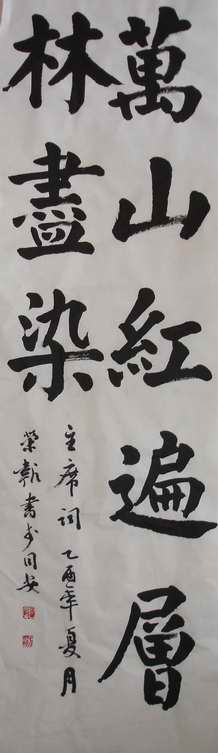 萬山紅遍層
林盡染
主席詞 乙酉年夏月
書於同安